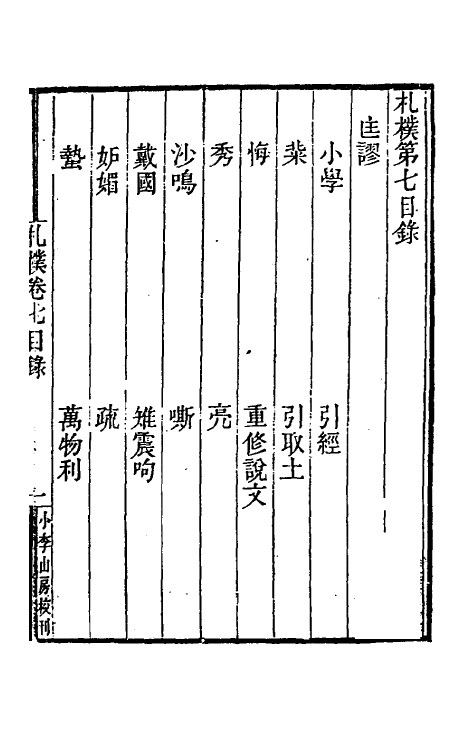 札樸第七目錄
匡謬
小學 引經
桒 引取土
悔 重修說文
秀 亮
沙鳴 嘶
戴國 雉震呴
妒媢 疏
蟄 萬物利
札樸卷七目錄 一 小李山房校刊